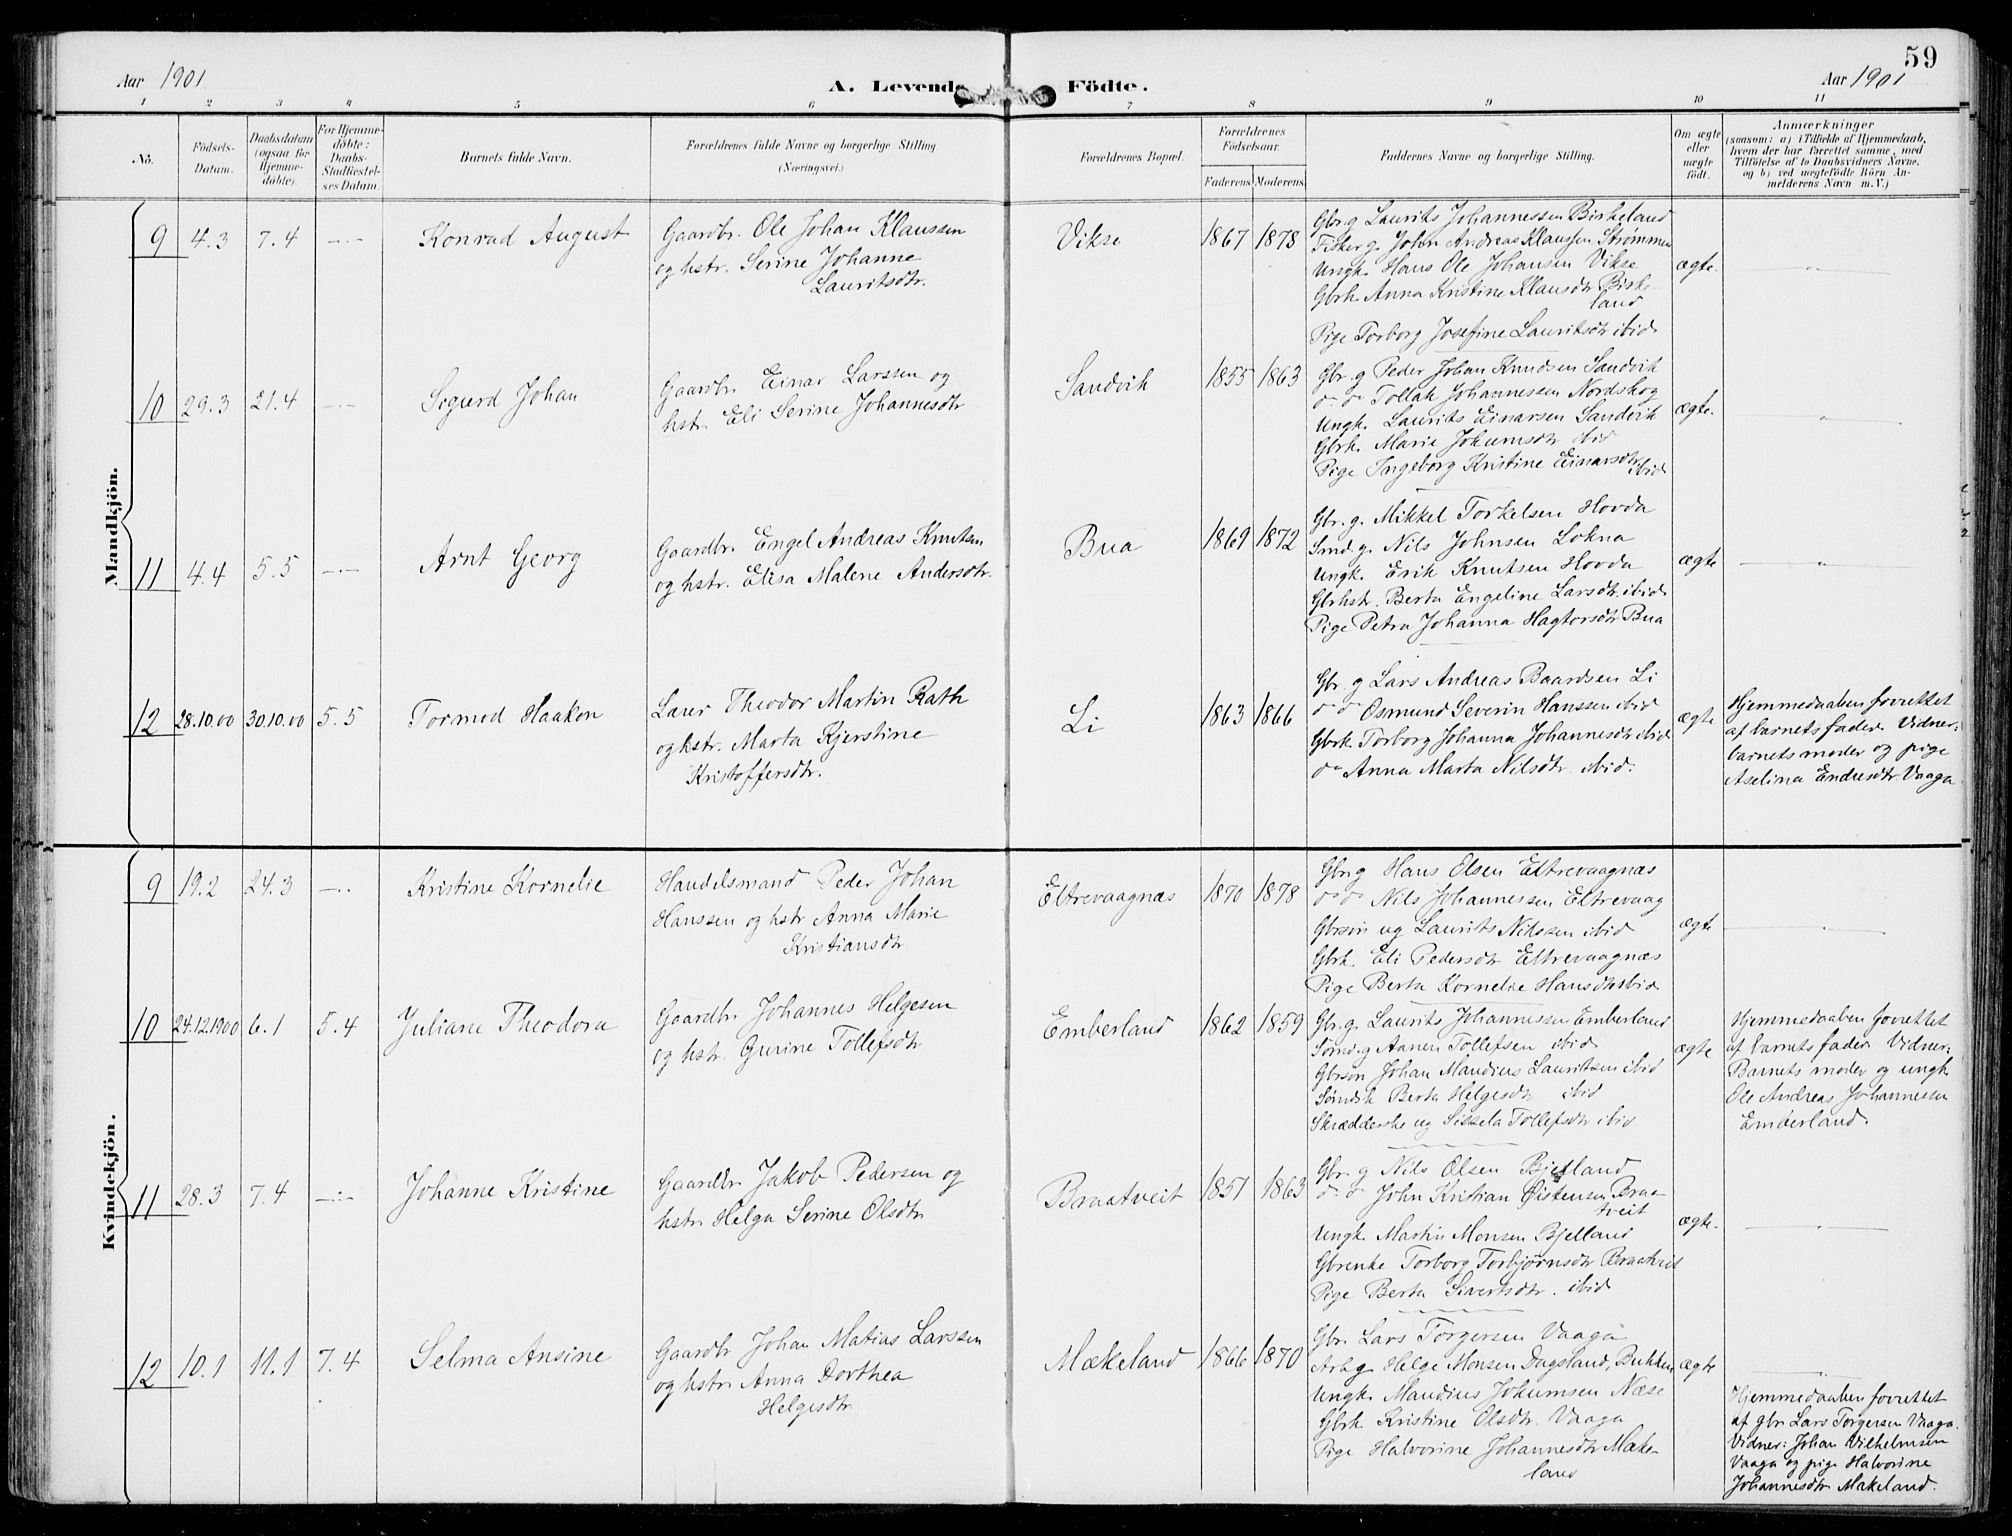 59
Aar 1901
A. Levende Födte.
Aar 1901
1 2 3 4 5 6 7 8 9 10 11
No.
Födsels-Datum.
Daabsdatum (ogsaa for Hjemme-döbte).
For Hjemme-döbte: Daabs-Stadfæstel-ses Datum.
Barnets fulde Navn.
Forældrenes fulde Navne og borgerlige Stilling.
(Næringsvei.)
Forældrenes Bopæl.
Forældrenes Födselsaar.
Faderens. Moderens.
Faddernes Navne og borgerlige Stilling.
Om ægte eller uægte födt.
Anmærkninger
(saasom: a) i Tilfælde af Hjemmedaab,
hvem der har forrettet samme, med
Tilföielse af to Daabsvidners Navne.
og b) ved uægtefödte Börn An-
melderens Navn m. V.)
Mandkjön.
9 4.3 7.4 —·— Konrad August
Gaardbr. Ole Johan Klaussen
og hstr. Serine Johanne
Lauritsdtr.
Vikse 1867 1878
Gbr. g Laurits Johannessen Birkeland
Fisker g. John Andreas Klaussen Strømmen
Ungk. Hans Ole Johansen Vikse
Gbrk. Anna Kristine Klausdtr Birke-
land
Pige Torborg Josefine Lauritsdtr ibid
ægte. — " —
10 29.3 21.4 —·— Sigurd Johan
Gaardbr. Einar Larssen og
hstr. Eli Serine Johannesdtr
Sandvik 1855 1863
Gbr. g Peder Johan Knudsen Sandvik
do do Tollak Johannessen Nordskog
Ungk. Laurits Einarsen Sandvik
Gbrk. Marie Jokumsdtr ibid
Pige Ingeborg Kristine Einarsdtr ibid
ægte. — " —
11 4.4 5.5 —·— Arnt Georg
Gaardbr. Engel Andreas Knutsen
og hstr. Elisa Malene Andersdtr.
Bua 1869 1872
Gbr. g. Mikkel Torkelsen Hovda
Smd. g. Nils Johnsen Lokna
Ungk. Erik Knutsen Hovda
Gbrhstr. Berta Engeline Larsdtr. ibid
Pige Petra Johanna Hagtorsdtr Bua
ægte — " —
12 28.10.00 30.10.00 5.5 Tormod Haakon
Lærer Theodor Martin Rath
og hstr. Marta Kjerstine
Kristoffersdtr.
Li 1863 1866
Gbr. g Lars Andreas Baardsen Li
do do Osmund Severin Hanssen ibid
Gbrk Torborg Johanna Johannesdtr ibid
do Anna Marta Nilsdtr. ibid.
ægte
Hjemmedaaben forrettet
af barnets fader. Vidner:
barnets moder og pige
Aselina Endresdtr. Vaaga
Kvindekjön.
9 19.2 24.3 —·— Kristine Kornelie
Handelsmand Peder Johan
Hanssen og hstr Anna Marie
Kristiansdtr
Eltrevaagnæs 1870 1878
Gbr g Hans Olsen Eltrevaagnæs
do do Nils Johannessen Eltrevaag
Gbrsøn ug Laurits Nilssen ibid
Gbrk. Eli Pedersdtr Eltrevaagnæs
Pige Berta Kornelie Hansdtr ibid
ægte — " —
10 24.12.1900 6.1 5.4 Juliane Theodora
Gaardbr. Johannes Helgesen
og hstr. Gurine Tollefsdtr
Emberland 1862 1859
Gbr. g. Laurits Johannessen Emberland
Sømd. g Aanen Tollefsen ibid
Gbrsøn Johan Mandius Lauritsen ibid
Sømdk Berta Helgesdtr ibid
Skrædderske ug Sissela Tollefsdtr ibid
ægte
Hjemmedaaben forrettet
af barnets fader. Vidner:
Barnets moder og ungk
Ole Andreas Johannessen
Emberland.
11 28.3 7.4 —·— Johanne Kristine
Gaardbr. Jakob Pedersen og
hstr. Helga Serine Olsdtr
Braatveit 1851 1863
Gbr. g Nils Olsen Bjelland
do do John Kristian Øistensen Braa-
tveit
Ungk. Martin Monsen Bjelland
Gbrenke Torborg Torbjørnsdtr Braatveit
Pige Berta Sivertsdtr. ibid
ægte. — " —
12 10.1 11.1 7.4 Selma Ansine
Gaardbr Johan Matias Larssen
og hstr. Anna Dorthea
Helgesdtr.
Mækeland 1866 1870
Gbr. Lars Torgersen Vaaga
Arb. g. Helge Monsen Dagsland, Bukken
Ungk. Mandius Jokumsen Næse
Gbrk Kristine Olsdtr. Vaaga
Pige Halvorine Johannesdtr Mæke-
land
ægte — " —
Hjemmedaaben forrettet
af gbr Lars Torgersen Vaaga.
Vidner: Johan Vilhelmsen
Vaaga og pige Halvorine
Johannesdtr Mækeland.